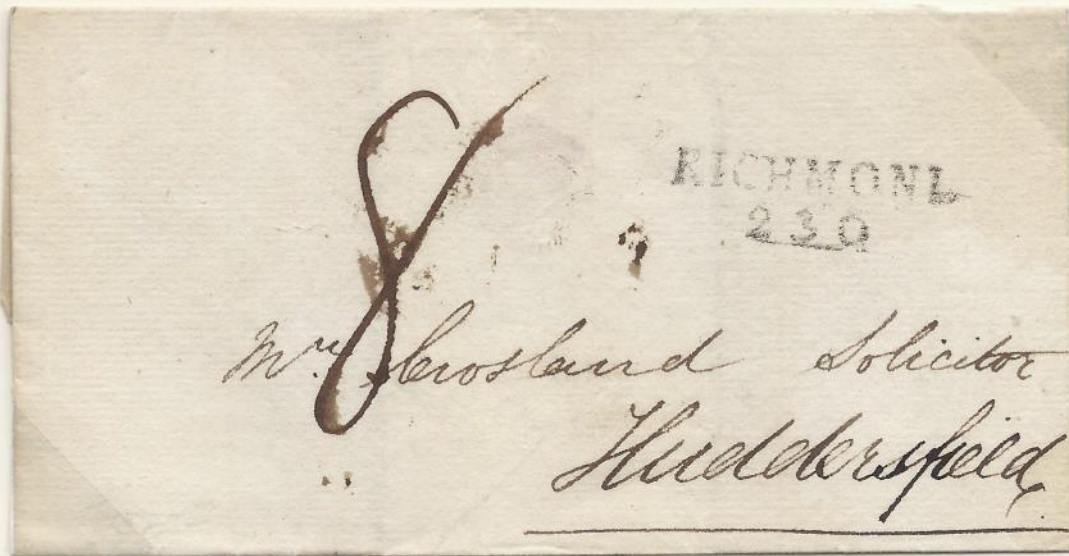 8
RICHMOND
230
Mr. Crosland Solicitor
Huddersfield